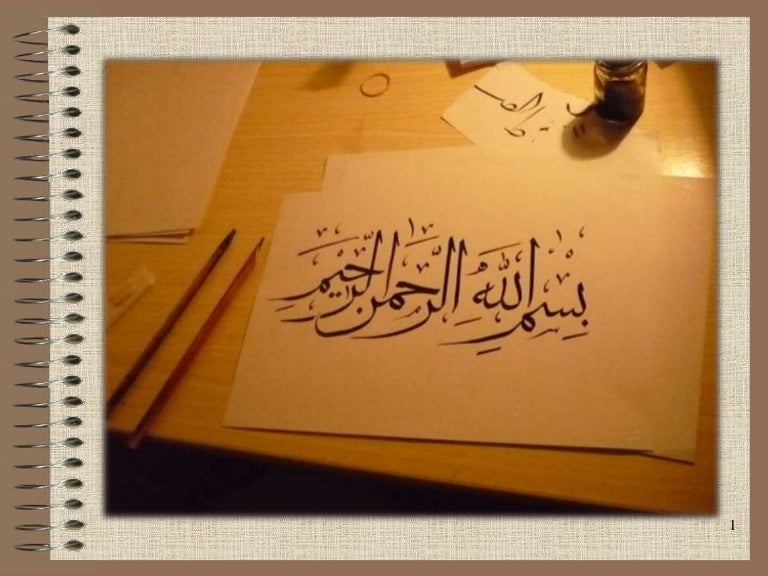 بِسْمِ اللهِ الرَّحْمنِ الرَّحِيْمِ
1